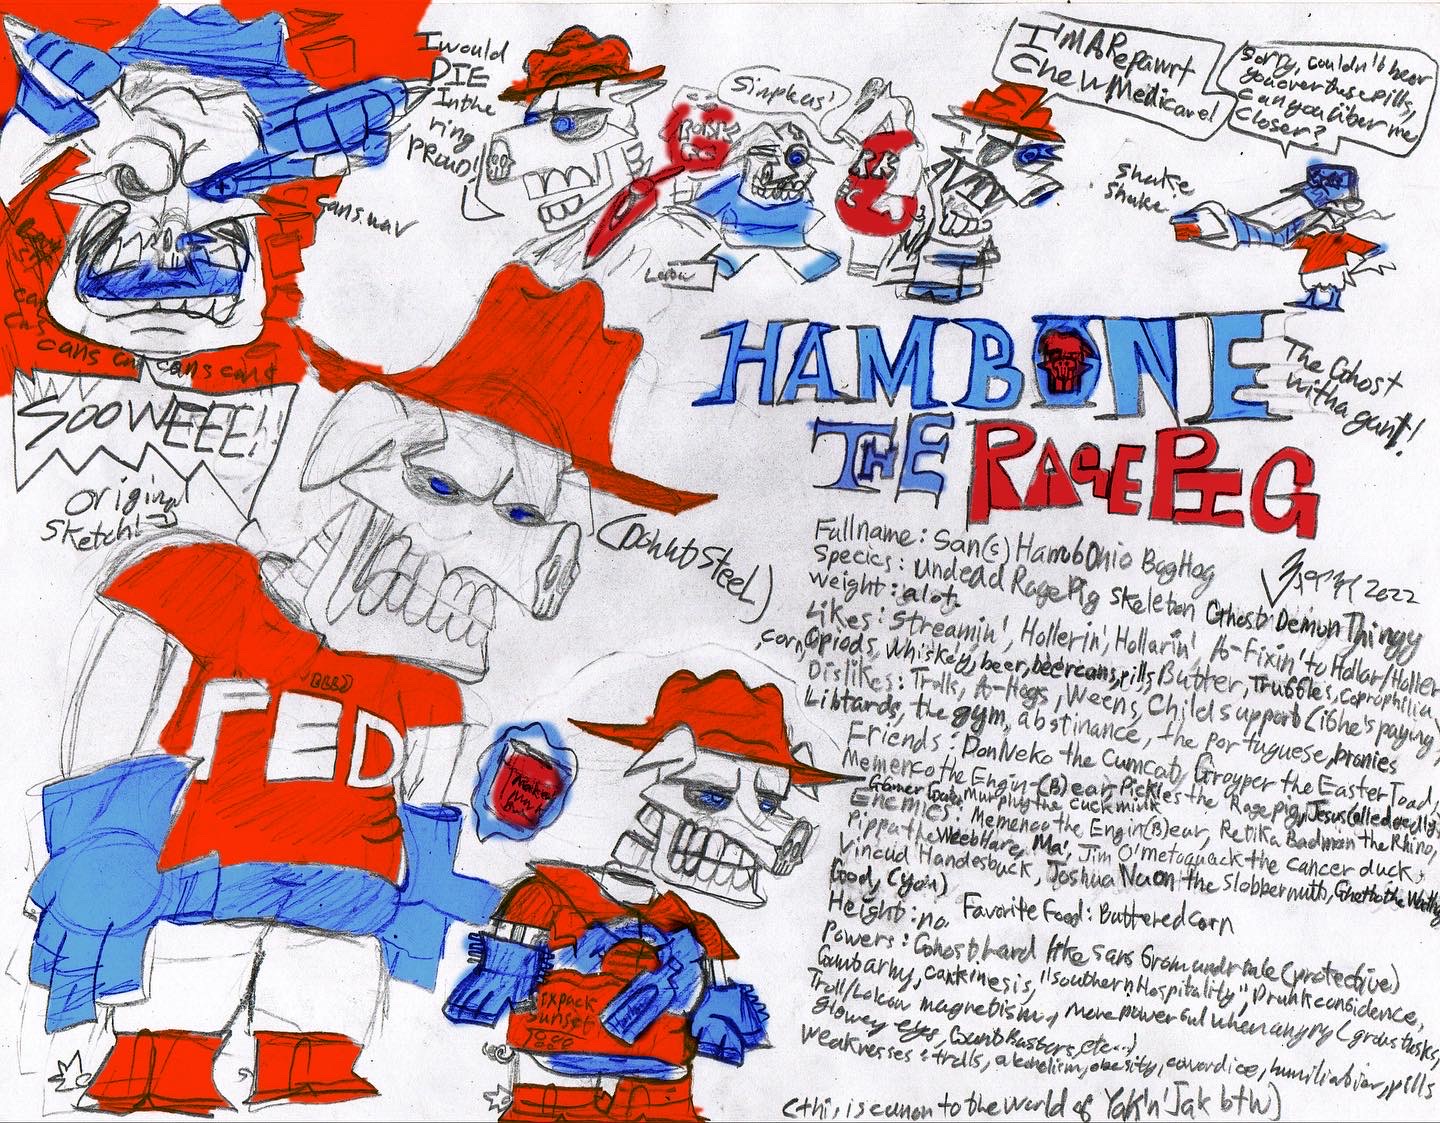 I would
DIE
In the
ring
PROUD!
Simpkus!
I'M A Repawrt
Chew Medicare!
Sorry, couldn't hear
you over these pills,
can you liber me
Closer?
shake
shake
sans.wav
cans cans cans cans
SOOWEEE!!
Original
Sketch!
HAMBONE
The Ghost
with a gun!
THE RAGEPIG
(Donut Steel)
FED
Sixpack
Sunset
2022
Fullname: San(s) HambOnio BagHog
Species: Undead RagePig Skeleton Ghost Demon Thingy
Weight: alot.
Likes: Streamin', Hollerin', Hollarin', to-Fixin' to Hollar/Holler
,corn, Opiods, whiskey, beer, beercans, pills, Butter, Truffles, coprophilia,
Dislikes: Trolls, to-Hogs, Weens, Child support (if he's paying)
Libtards, the gym, abstinance, the portuguese, bronies
Friends: Don Neko the Cumcat, Groyper the Easter Toad,
Memenco the Engin-(B)ear, Pickles the Ragepig, Jesus (allegedly)
Gamer Gator, Murphy the cuck mink
Enemies: Memenco the Engin(B)ear, Retika Badman the Rhino,
Pippa the Weeb Hare, Ma', Jim O'metoquack the cancer duck,
Vincud Handesbuck, Joshua Nuon the Slobbermutt,
God, (you)
Height: no. Favorite Food: Buttered Corn
Powers: Ghost, hard like sans from undrtale (protective)
Gunt army, cankinesis, "Southern Hospitality", Drunk confidence,
Troll/Lolcow magnetism, more powerful when angry (grows tusks,
glowey eyes, Gunt Busters, etc...)
Weaknesses: trolls, alcoholism, obesity, cowardice, humiliation, pills
(this is canon to the world of Yak'n'Jak btw)